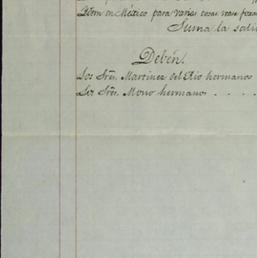 Idem en México para varias cosas
Suma la
Deben.
Los Sres. Martinez del Rio hermanos
Los Sres. Mono hermano . . . . .